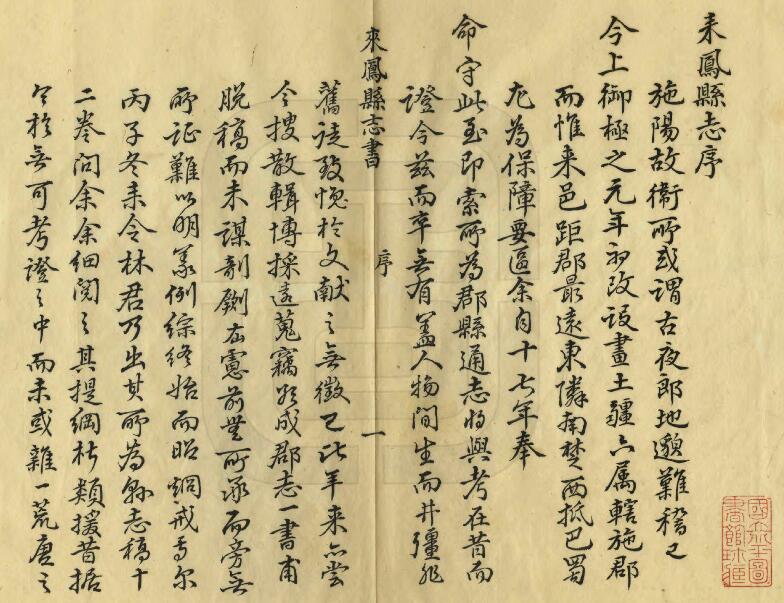 来鳳縣志序
施陽故衛所或謂古夜郎地邈難稽已
今上御極之元年初改設畫土疆六属轄施郡
而惟来邑距郡最遠東隣南楚西抵巴蜀
尤為保障要區余自十七年奉
命守此至即索所為郡縣通志将與考在昔而
證今兹而卒無有盖人物間生而井疆非
來鳳縣志書
序
一
舊徒致慨於文献之無徵已比年来亦嘗
今搜散輯博採遠蒐竊欲成郡志一書甫
脱稿而未謀剞劂在憲前無所承而旁無
所証難以明義例綜終始而昭烱戒焉尔
丙子冬来令林君乃出其所為縣志稿十
二卷问余余细閲之其提綱析類援昔据
今於無可考證之中而未或雜一荒唐之